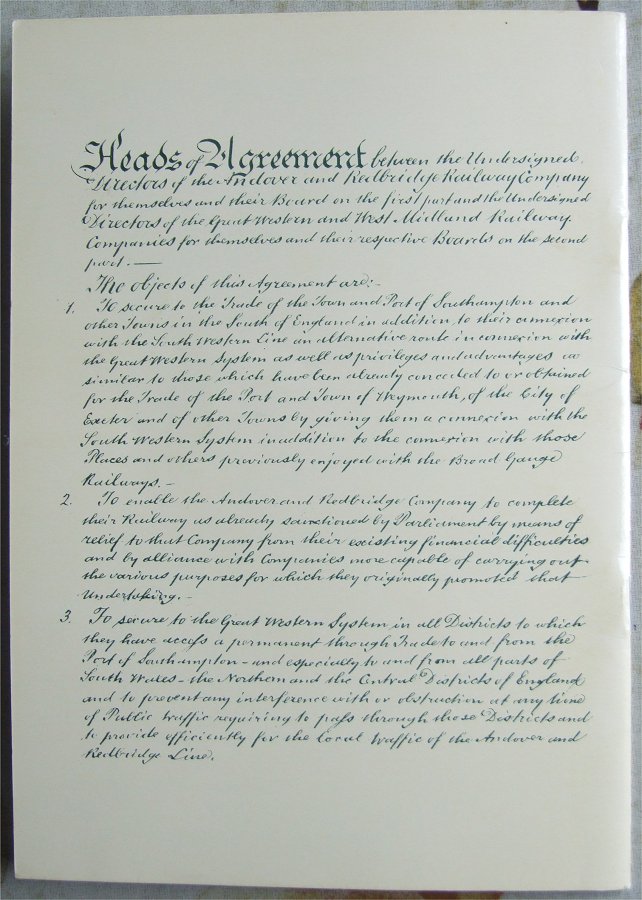 Heads of Agreement between the Undersigned
Directors of the Andover and Redbridge Railway Company
for themselves and their Board on the first part and the Undersigned
Directors of the Great Western and West Midland Railway
Companies for themselves and their respective Boards on the second
part. —
The objects of this Agreement are:-
1. To secure to the Trade of the Town and Port of Southampton and
other Towns in the South of England in addition to their connexion
with the South Western Line an alternative route in connexion with
the Great Western System as well as privileges and advantages as
similar to those which have been already conceded to or obtained
for the Trade of the Port and Town of Weymouth, of the City of
Exeter and of other Towns by giving them a connexion with the
South Western System in addition to the connexion with those
Places and others previously enjoyed with the Broad Gauge
Railways. —
2. To enable the Andover and Redbridge Company to complete
their Railway as already sanctioned by Parliament by means of
relief to that Company from their existing financial difficulties
and by alliance with Companies more capable of carrying out
the various purposes for which they originally promoted that
Undertaking. —
3. To secure to the Great Western System in all Districts to which
they have access a permanent through Trade to and from the
Port of Southampton - and especially to and from all parts of
South Wales - the Northern and the Central Districts of England
and to prevent any interference with or obstruction at any time
of Public traffic requiring to pass through those Districts and
to provide efficiently for the local traffic of the Andover and
Redbridge Line.